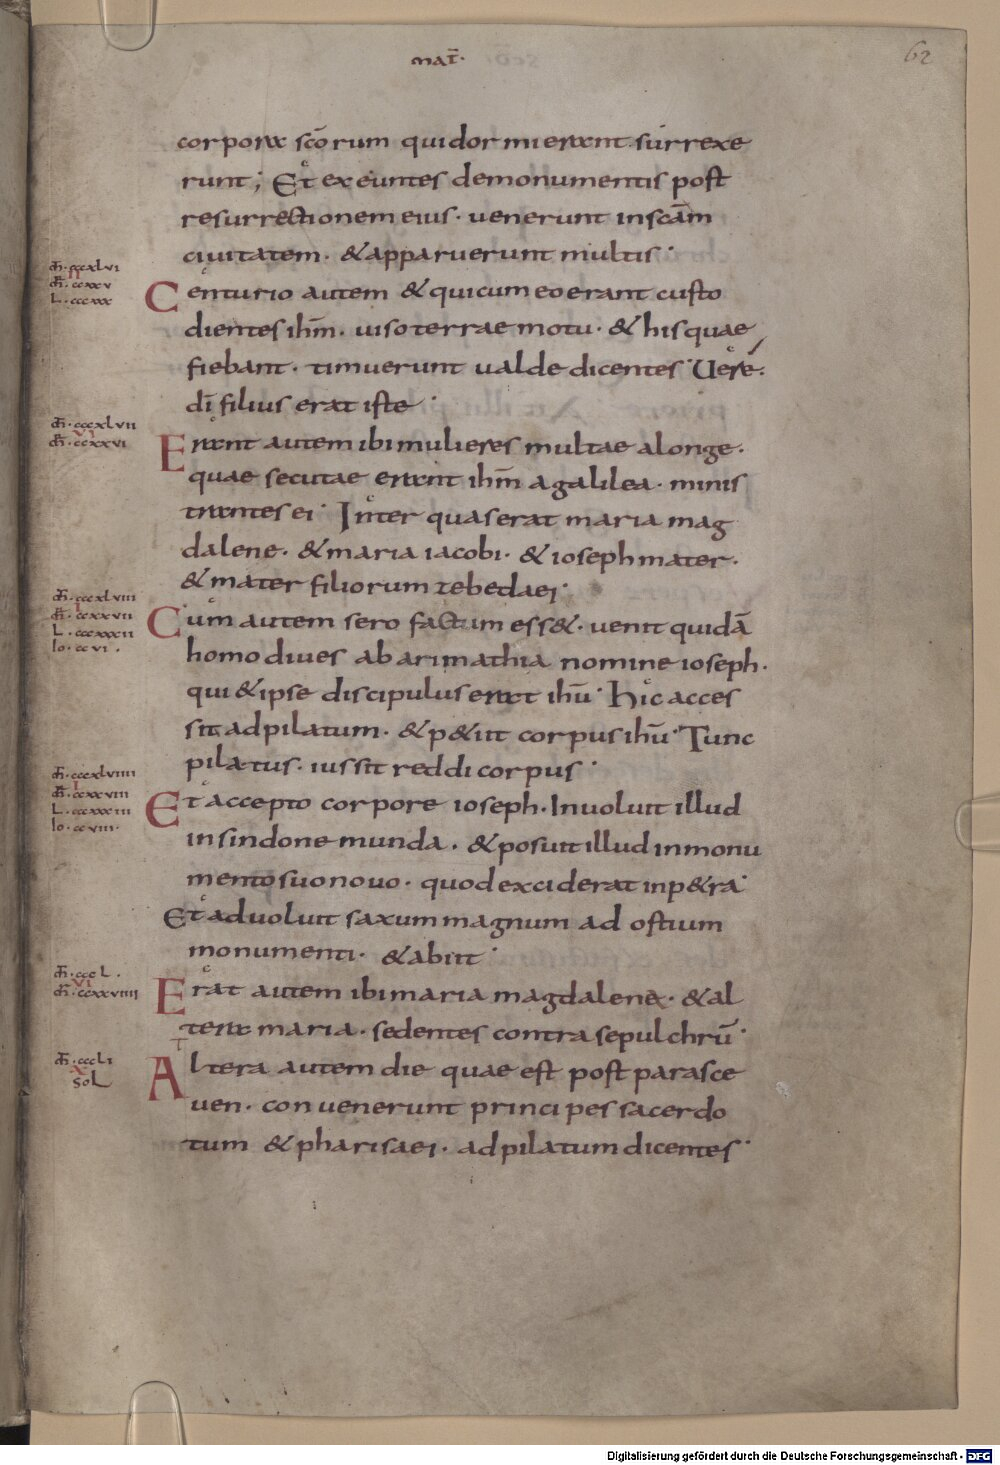 mat̄·
62
corpora sc̄orum qui dormierant surrexe
runt; Et exeuntes de monumentis post
resurrectionem eius· uenerunt in sc̄am
ciuitatem· & apparuerunt multis·
m̄·cccxlvi
m̄r·ccxxv
II
L·cccxxx
Centurio autem & qui cum eo erant custo
dientes ihm̄· uiso terrae motu· & his quae
fiebant· timuerunt ualde dicentes· Uere·
dī filius erat iste·
m̄·cccxlvii
VI
m̄r·ccxxvi
Erant autem ibi mulieres multae a longe·
quae secutae erant ihm̄ a galilea· minis
trantes ei· Inter quas erat maria mag
dalene· & maria iacobi· & ioseph mater·
& mater filiorum zebedaei·
m̄·cccxlviii
I
m̄r·ccxxvii
L·cccxxxii
Io·ccvi·
Cum autem sero factum ess&· uenit quidā
homo diues ab arimathia nomine ioseph·
qui & ipse discipulus erat ihū· Hic acces
sit ad pilatum· & p&iit corpus ihū· Tunc
pilatus· iussit reddi corpus·
m̄·cccxlviiii
I
m̄r·ccxxviii
L·cccxxxiii
Io·ccviii·
Et accepto corpore ioseph· Inuoluit illud
in sindone munda· & posuit illud in monu
mento suo nouo· quod exciderat in p&ra·
Et aduoluit saxum magnum ad ostium
monumenti· & abiit·
m̄·cccL·
VI
m̄r·ccxxviiii
Erat autem ibi maria magdalenae· & al
tera maria· sedentes contra sepulchrū·
m̄·cccLi
X
soL
Altera autem die quae est post parasce
uen· conuenerunt principes sacerdo
tum & pharisaei· ad pilatum dicentes·
Digitalisierung gefördert durch die Deutsche Forschungsgemeinschaft - DFG